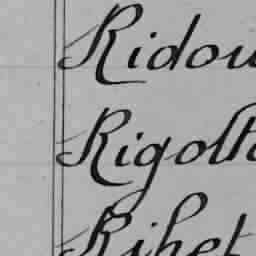 Ridou
Rigolt
Rihet